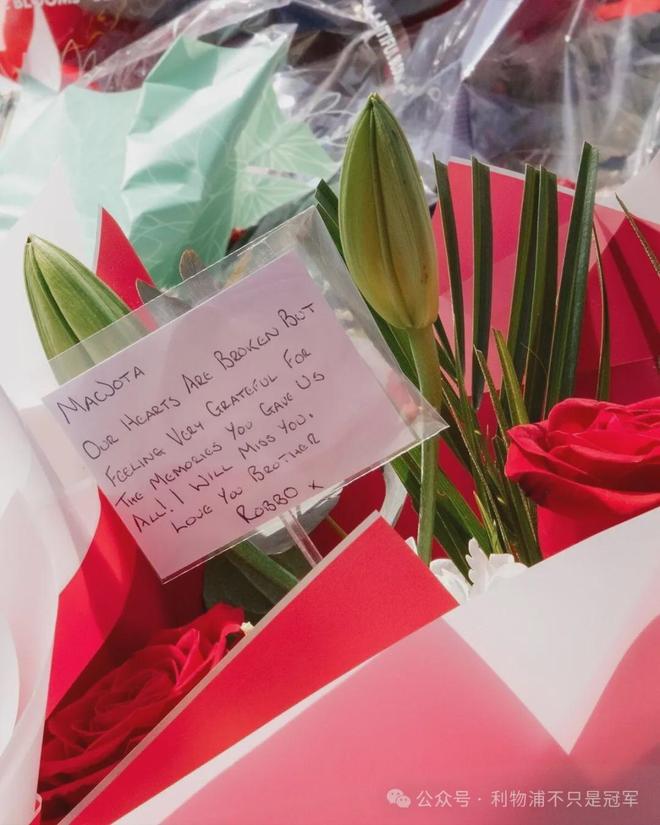 E BLOOMS
MACJOTA
OUR HEARTS ARE BROKEN BUT
FEELING VERY GRATEFUL FOR
THE MEMORIES YOU GAVE US
ALL!! I WILL MISS YOU.
LOVE YOU BROTHER
ROBBO X
公众号 · 利物浦不只是冠军